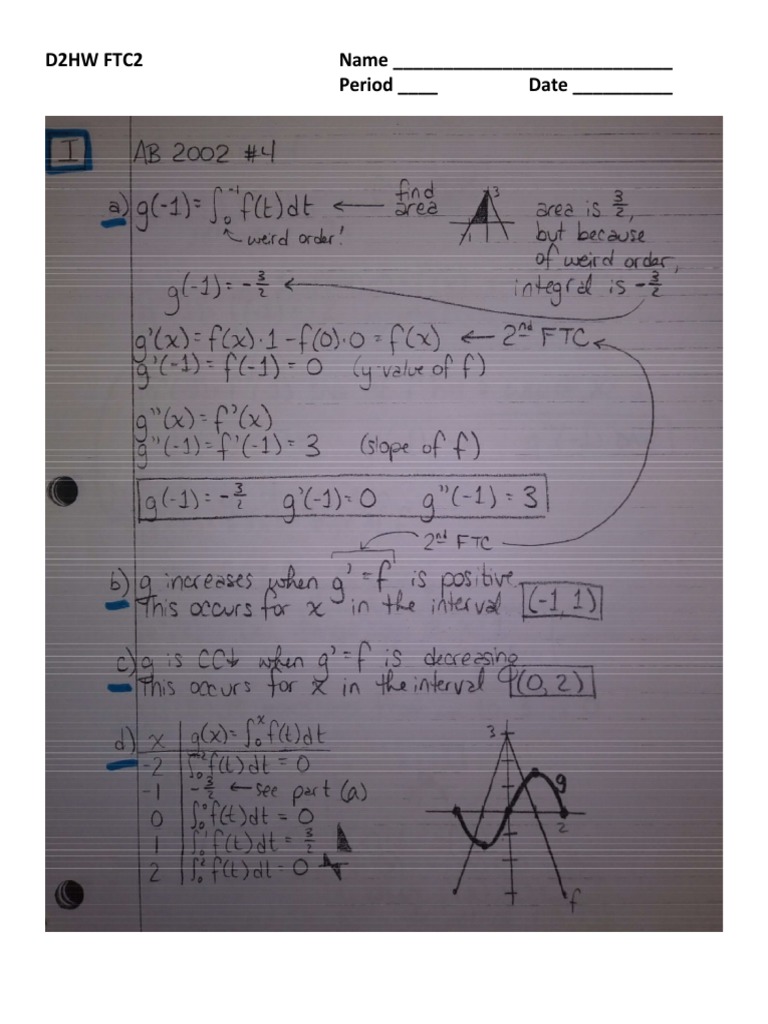 D2HW FTC2
Name ____________________________
Period ____ Date __________
I AB 2002 #4
a) g(-1) = ∫₀⁻¹ f(t)dt ← find area
weird order!
-1
3
area is 3/2,
but because
of weird order,
integral is -3/2
g(-1) = -3/2
g'(x) = f(x)·1 - f(0)·0 = f(x) ← 2nd FTC
g'(-1) = f(-1) = 0 (y-value of f)
g"(x) = f'(x)
g"(-1) = f'(-1) = 3 (slope of f)
g(-1) = -3/2 g'(-1) = 0 g"(-1) = 3
2nd FTC
b) g increases when g' = f is positive.
This occurs for x in the interval (-1, 1)
c) g is CC↓ when g' = f is decreasing
This occurs for x in the interval (0, 2)
d) x g(x) = ∫₀ˣ f(t)dt
-2 ∫₀⁻² f(t)dt = 0
-1 -3/2 ← see part (a)
0 ∫₀⁰ f(t)dt = 0
1 ∫₀¹ f(t)dt = 3/2
2 ∫₀² f(t)dt = 0
3
g
2
f